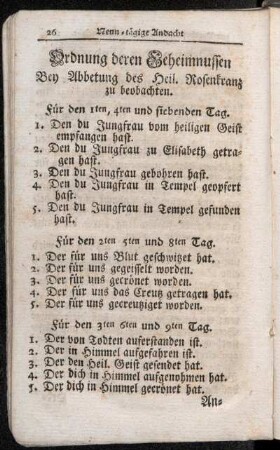 26 Neun-tägige Andacht
Ordnung deren Geheimnussen
Bey Abbetung des Heil. Rosenkranz
zu beobachten.
Für den 1ten, 4ten und siebenden Tag.
1. Den du Jungfrau vom heiligen Geist
empfangen hast.
2. Den du Jungfrau zu Elisabeth getra-
gen hast.
3. Den du Jungfrau gebohren hast.
4. Den du Jungfrau in Tempel geopfert
hast.
5. Den du Jungfrau in Tempel gefunden
hast.
Für den 2ten 5ten und 8ten Tag.
1. Der für uns Blut geschwitzet hat.
2. Der für uns gegeisselt worden.
3. Der für uns gecrönet worden.
4. Der für uns das Creutz getragen hat.
5. Der für uns gecreutziget worden.
Für den 3ten 6ten und 9ten Tag.
1. Der von Todten auferstanden ist.
2. Der in Himmel aufgefahren ist.
3. Der den Heil. Geist gesendet hat.
4. Der dich in Himmel aufgenohmen hat.
5. Der dich in Himmel gecrönet hat.
An-